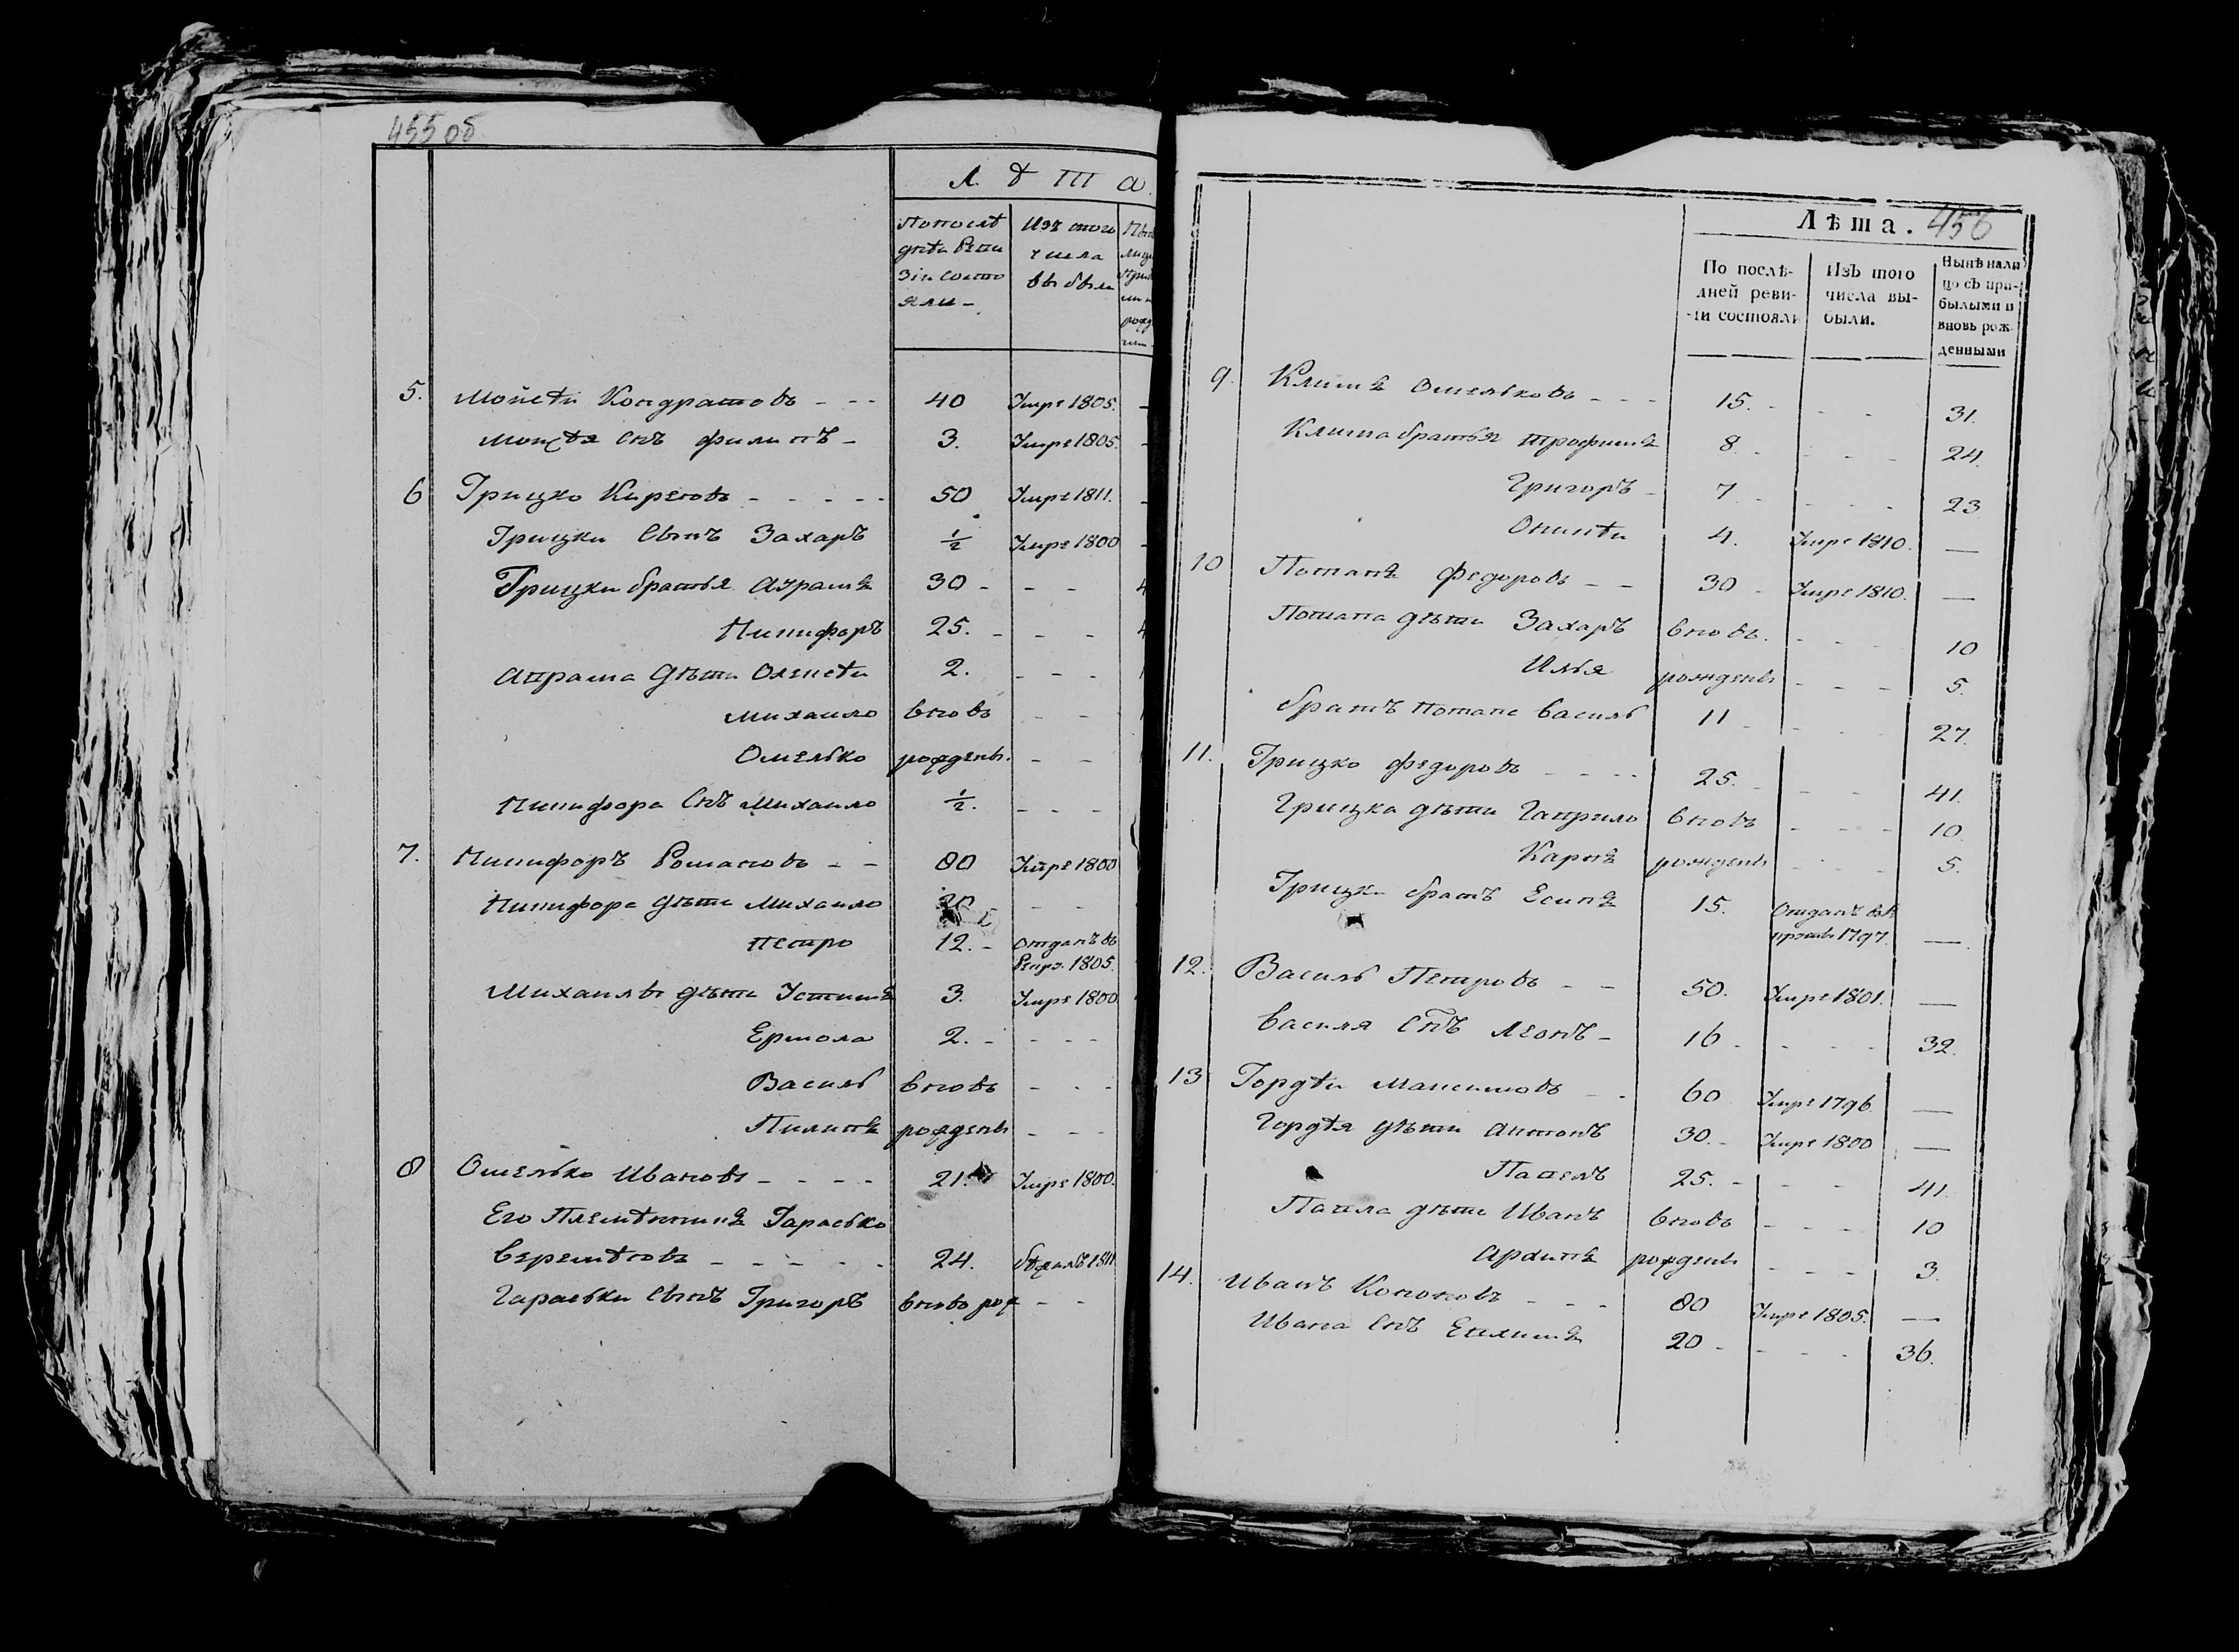 455 об
Л ѣ т а.
По послѣ Изъ того
днѣи Реви числа
зіи состо выбыли
яли -
5. Мойсѣи Кондратовъ - - - 40 Умре 1805.
Мойсѣя Снъ Филипъ - 3. Умре 1805.
6 Грицко Киреевъ - - - - - 50 Умре 1811.
Грицки Сынъ Захаръ ½ Умре 1800
Грицки братья Аврамъ 30 - - - 4
Никифоръ 25. - - - 4
Аврама дѣти Олексѣи 2. - - -
Михаило вновь - -
Омелько рожденъ. - -
Никифора Снъ Михаило ½. - - -
7. Никифоръ Романовъ - - 80 Умре 1800
Никифора дѣти Михаило 20 - -
Петро 12. - Отданъ въ
Рекру. 1805.
Михаилы дѣти Устимъ 3. Умре 1800
Ермола 2. - - - -
Василь вновь - - -
Пилипъ рождены - - -
8 Омелько Ивановъ - - - - 21. Умре 1800.
Его Племѣнникъ Гарасько
Веремѣевъ - - - - - 24. бѣжалъ 1811
Гараськи Сынъ Григоръ вновь рож - -
456
Лѣта.
По послѣ- Изъ того Нынѣ нали
дней реви- числа вы- цо съ при-
зіи состояли были. былыми и
вновь рож-
денными
9. Климъ Омельковъ - - - 15. - - - 31.
Клима братья Трофимъ 8. - - - - 24.
Григоръ - 7 - - - - 23
Онисѣи 4. Умре 1810. —
10 Потапъ Федоровъ - - 30 - Умре 1810. —
Потапа дѣти Захаръ вновь. - - - 10
Илья рождены - - - 5.
братъ Потапа Василь 11 - - - 27.
11. Грицко Федоровъ - - - - 25. - - - 41.
Грицка дѣти Гаврило вновь - - - 10.
Карпъ рождены - - - 5.
Грицки братъ Есипъ 15. Отданъ въ Р
круты 1797. —
12. Василь Петровъ - - 50. Умре 1801. —
Василя Снъ Леонъ - 16 - - - - 32.
13 Гордѣи Максимовъ - - 60 Умре 1796. —
Гордѣя дѣти Антонъ 30. - Умре 1800 —
Павелъ 25. - - - 41.
Павла дѣти Иванъ вновь - - - 10
Архипъ рождены - - - 3.
14. Иванъ Кононовъ - - - 80 Умре 1805. —
Ивана Снъ Евхимъ 20 - - - - 36.